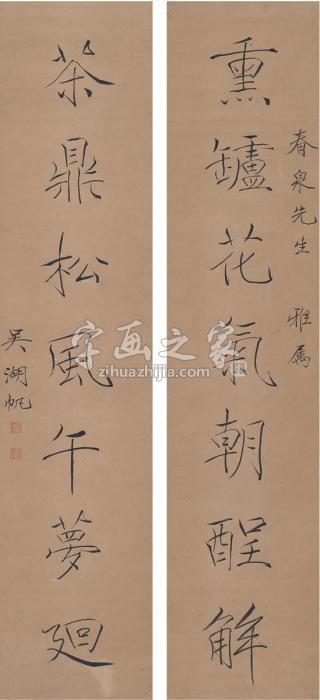 熏鑪花氣朝酲解
春泉先生 雅属
茶鼎松風午夢廻
吴湖帆
字画之家
zihuazhijia.com